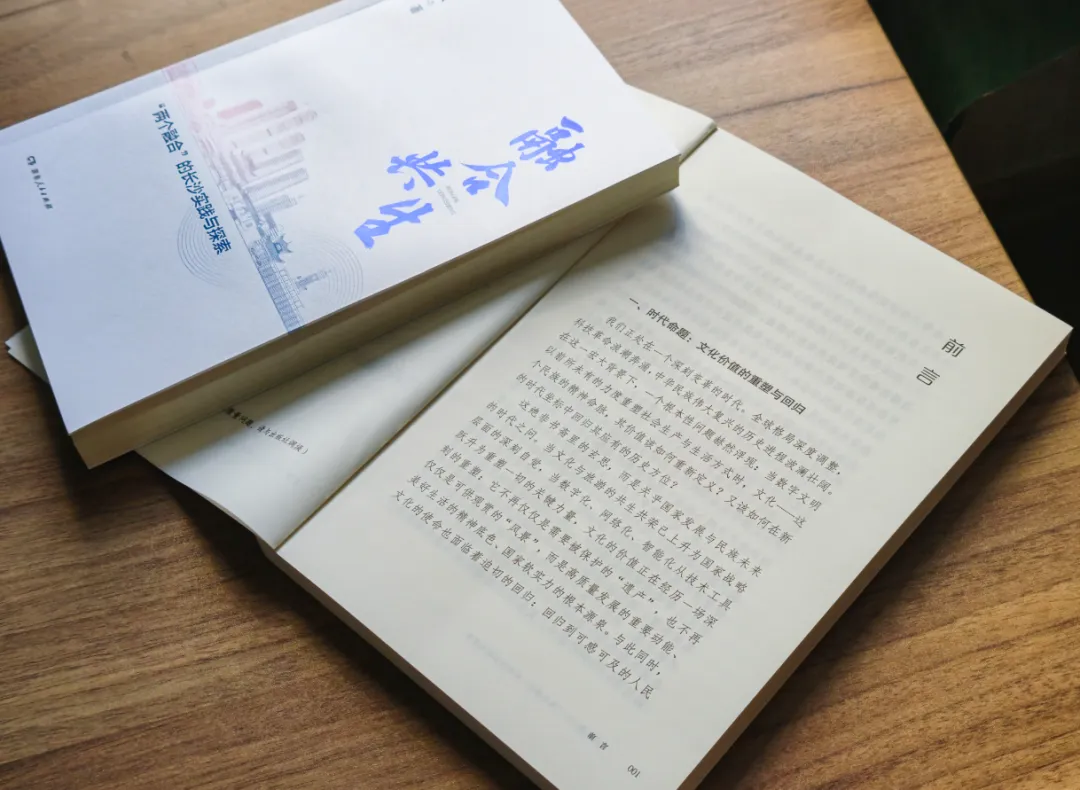 融合
共生
“两个融合”的长沙实践与探索
湖南人民出版社
著
前言
一、时代命题：文化价值的重塑与回归
我们正处在一个深刻变革的时代。全球格局深度调整，
科技革命浪潮奔涌，中华民族伟大复兴的历史进程波澜壮阔。
在这一宏大背景下，一个根本性问题赫然浮现：当数字文明
以前所未有的力度重塑社会生产与生活方式时，文化——这
个民族的精神命脉，其价值该如何重新定义？又该如何在新
的时代坐标中回归其应有的历史方位？
这绝非书斋里的玄思，而是关乎国家发展与民族未来
的时代之问。当文化与旅游的共生共荣已上升为国家战略
层面的深刻自觉，当数字化、网络化、智能化从技术工具
跃升为重塑一切的关键力量，文化的价值正在经历一场深
刻的重塑：它不再仅仅是需要被保护的“遗产”，也不再
仅仅是可供观赏的“风景”，而是高质量发展的重要动能、
美好生活的精神底色、国家软实力的根本源泉。与此同时，
文化的使命也面临着迫切的回归：回归到可感可及的人民
前言
001